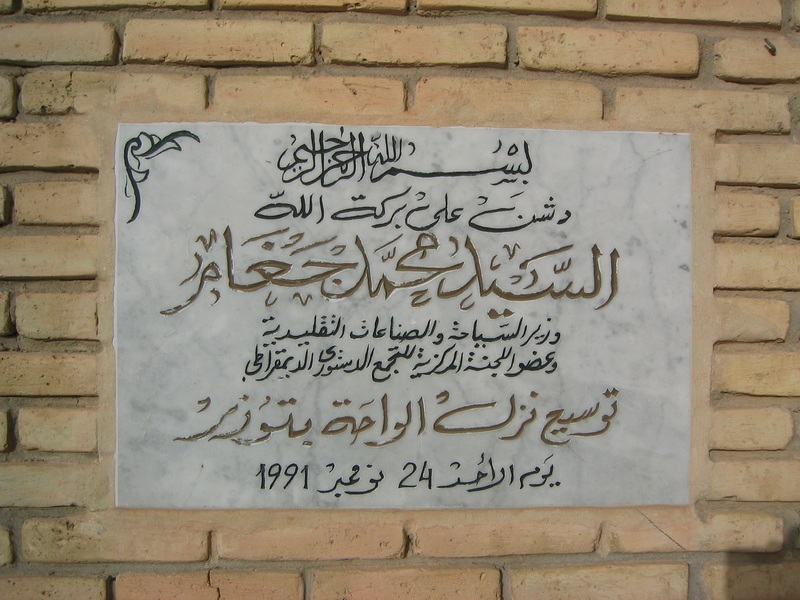 بسم الله الرحمن الرحيم
دشن على بركة الله
السيد محمد جغام
وزير السياحة والصناعات التقليدية
وعضو اللجنة المركزية للتجمع الدستوري الديمقراطي
توسيع نزل الواحة بتوزر
يوم الأحد 24 نوفمبر 1991